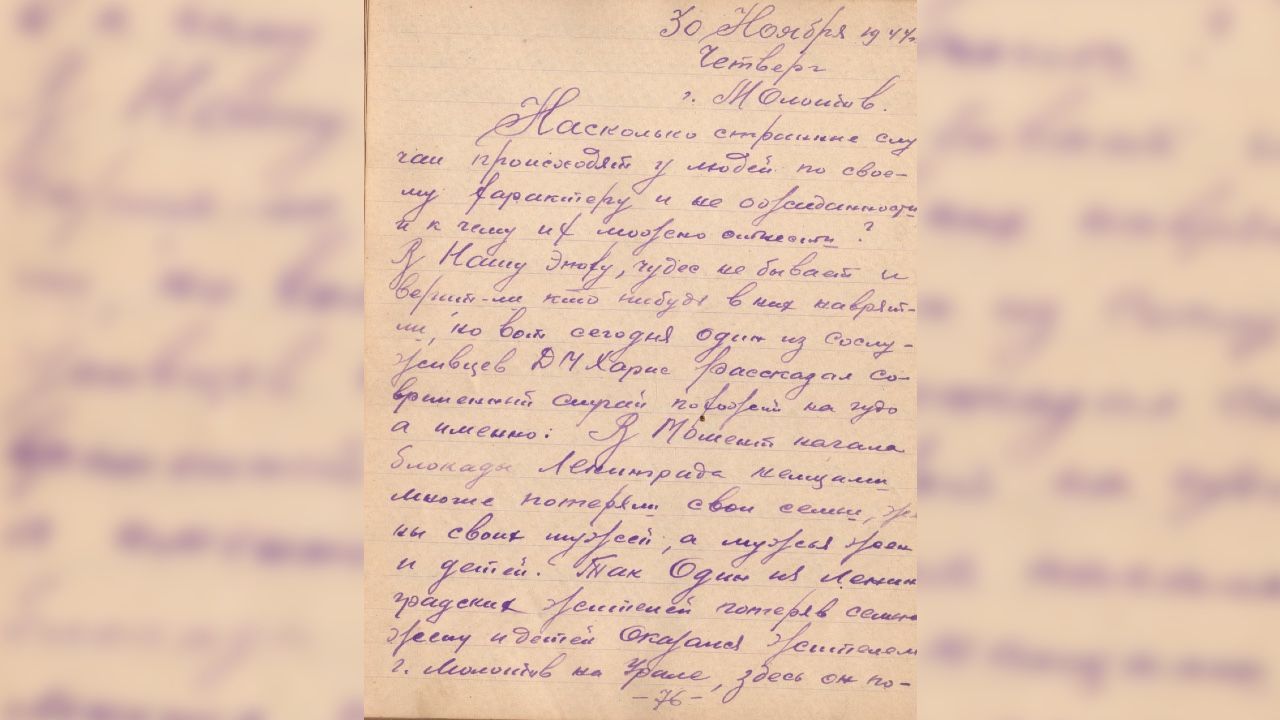 30 Ноября 1944г
Четверг
г. Молотов.
Насколько странные слу
чаи происходят у людей по свое-
му характеру и не ожиданности
и к чему их можно отнести?
В Нашу Эпоху, чудес не бывает и
верит-ли кто нибудь в них наврят-
ли, но вот сегодня один из сослу-
живцев Харис Рассказал со-
вршенный случай похожий на чудо
а именно: В Момент начала
блокады Ленинграда немцами
многие потеряли свои семьи, же
ны своих мужей, а мужья жен
и детей. Так Один из Ленин
градских жителей потеряв семью
жену и детей Оказался жителем
г. Молотов на Урале, здесь он по-
-76-